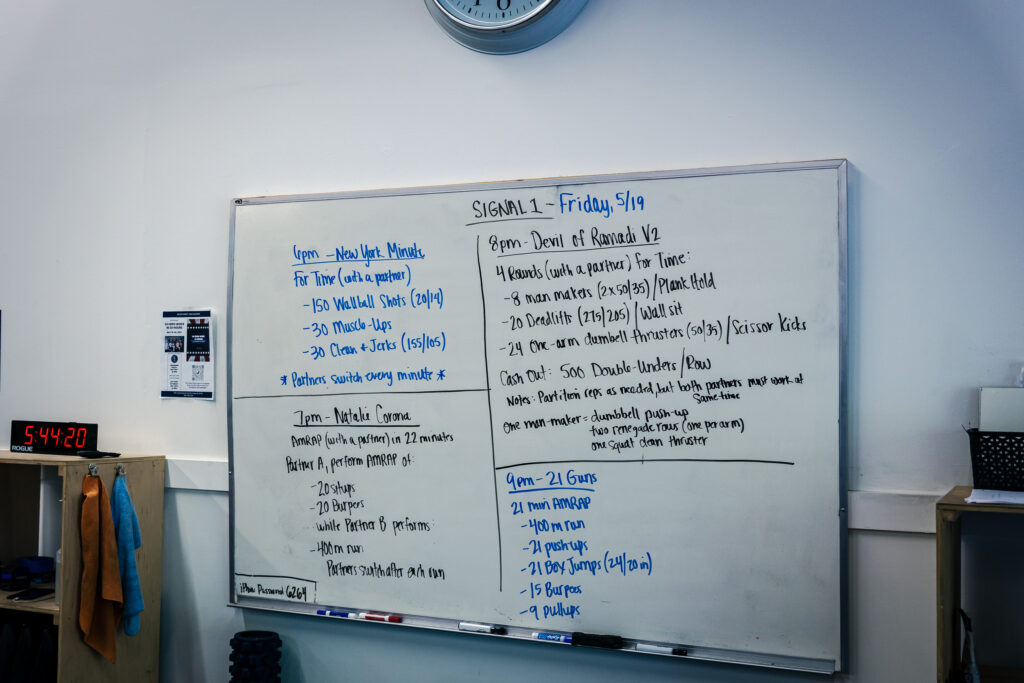 6
SIGNAL 1 - Friday, 5/19
6pm - New York Minute
For Time (with a partner)
- 150 Wallball Shots (20/14)
- 30 Muscle-Ups
- 30 Clean + Jerks (155/105)
* Partners switch every minute *
7pm - Natalie Corona
AMRAP (with a partner) in 22 minutes
Partner A, perform AMRAP of:
- 20 situps
- 20 Burpees
while Partner B performs:
- 400m run
Partners switch after each run
Password 6264
8pm - Devil of Ramadi V2
4 Rounds (with a partner) for Time:
- 8 man makers (2x50/35) / Plank Hold
- 20 Deadlifts (275/205) / Wall sit
- 24 One-arm dumbell thrusters (50/35) / Scissor Kicks
Cash Out: 500 Double-Unders / Row
Notes: Partition reps as needed, but both partners must work at
same time
One man-maker = dumbbell push-up
two renegade rows (one per arm)
one squat clean thruster
9pm - 21 Guns
21 min AMRAP
- 400 m run
- 21 pushups
- 21 Box Jumps (24/20 in)
- 15 Burpees
- 9 pullups
5:44:20
ROGUE